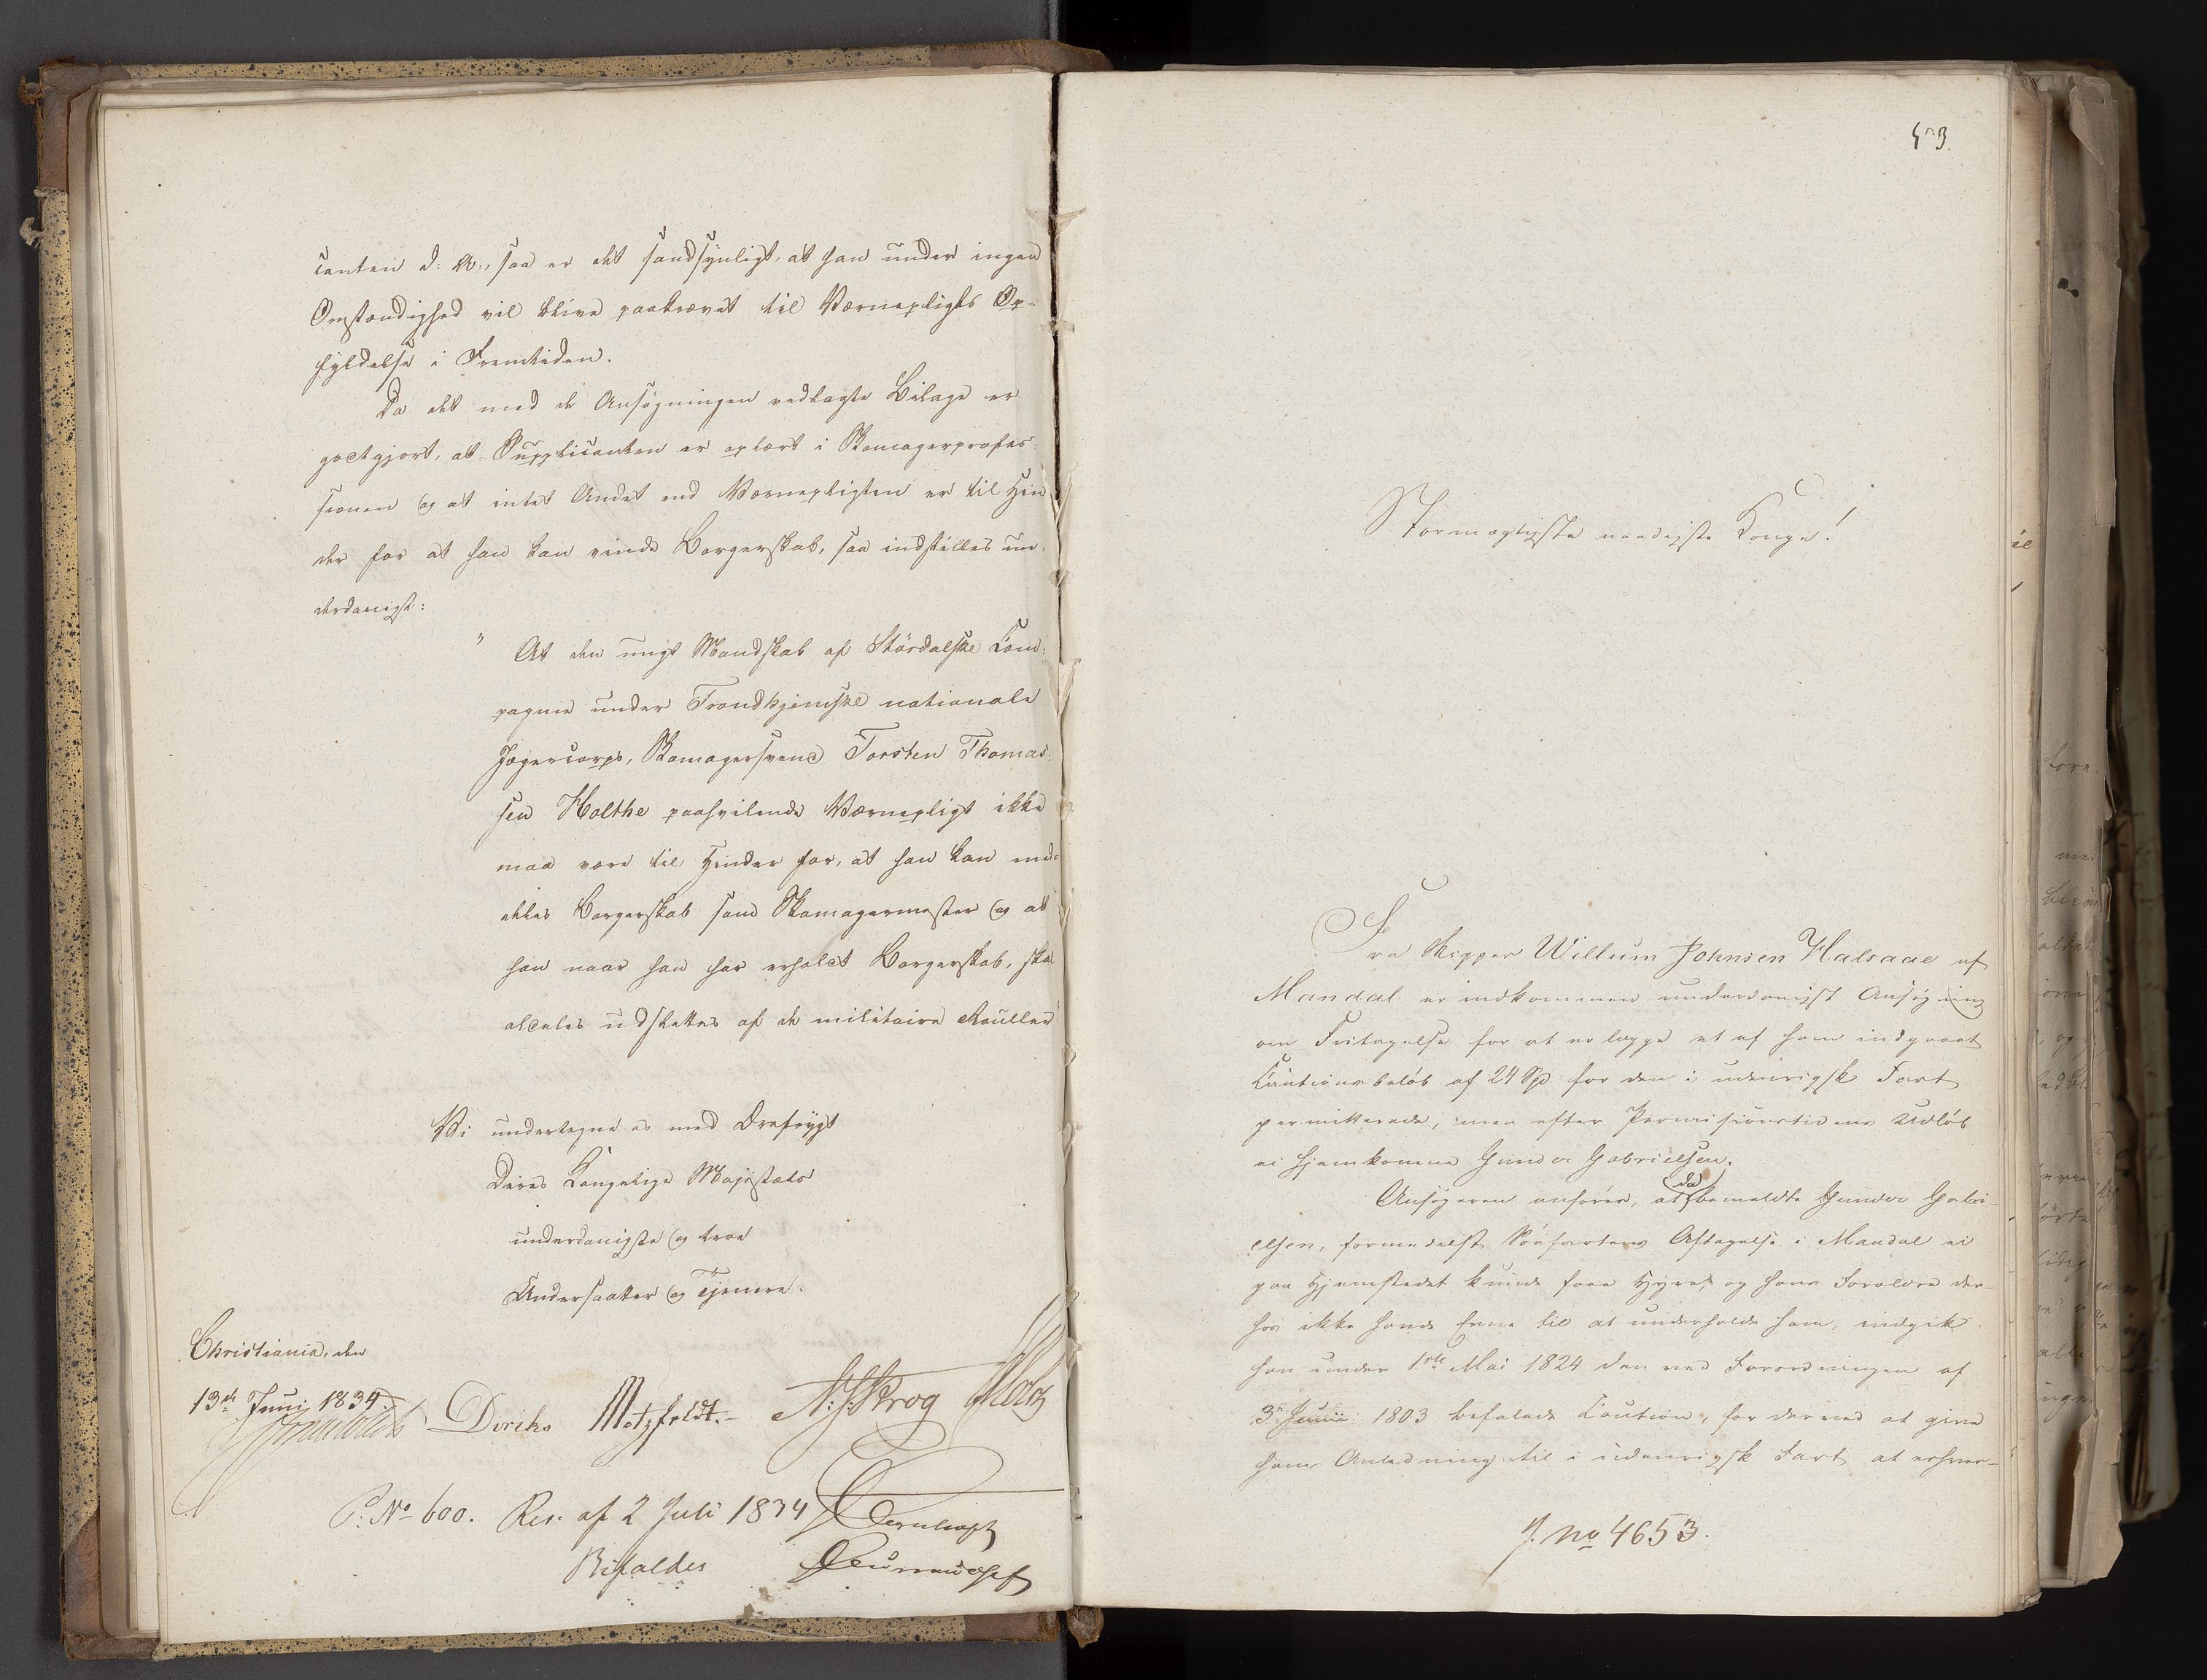 canten d: A:, saa er det sandsynligt, at han under ingen
Omstændighed vil blive paakrævet til Værnepligts Op-
fyldelse i Fremtiden.
Da det med de Ansøgningen vedlagte Bilage er
godtgjort, at Supplicanten er oplært i Skomagerprofes-
sionen og at intet Andet end Værnepligten er til Hin-
der for at han kan vinde Borgerskab, saa indstilles un-
derdanigst:
" At den ungt Mandskab af Størdalske Com-
pagnie under Trondhjemske nationale
Jægercorps, Skomagersvend Torsten Thomas-
sen Holthe paahvilende Værnepligt ikke
maa være til Hinder for, at han kan med-
deles Borgerskab som Skomagermester og at
han naar han har erholdt Borgerskab, skal
aldeles udslettes af de militaire Rouller"
Vi undertegne os med Ærefrygt
Deres Kongelige Majestæts
underdanigste og troe
Undersaatter og Tjenere.
Christiania, den
13de Juni 1834.
Diriks Motzfeldt. N. J. Krog Holst
P: No 600. Res. af 2 Juli 1834
Bifaldes
Stormægtigste naadigste Konge!
Fra Skipper Willum Johnsen Halsaae af
Mandal er indkommen underdanigst Ansøgning
om Fritagelse for at erlægge et af ham indgaaet
Cautionsbeløb af 24 Spd for den i udenrigsk Fart
permitterede, men efter Permissionstidens Udløb
ei hjemkomne Gunder Gabrielsen.
Ansøgeren anfører, at da bemeldte Gunder Gabri-
elsen, formedelst Skibsfartens Aftagelse i Mandal ei
paa Hjemstedet kunde faae Hyre, og hans Forældre der-
hos ikke havde Evne til at underholde ham, indgik
han under 1ste Mai 1824 den ved Forordningen af
3 Junii 1803 befalede Caution, for derved at give
ham Anledning til i udenrigsk Fart at erhver-
J. No 4653.